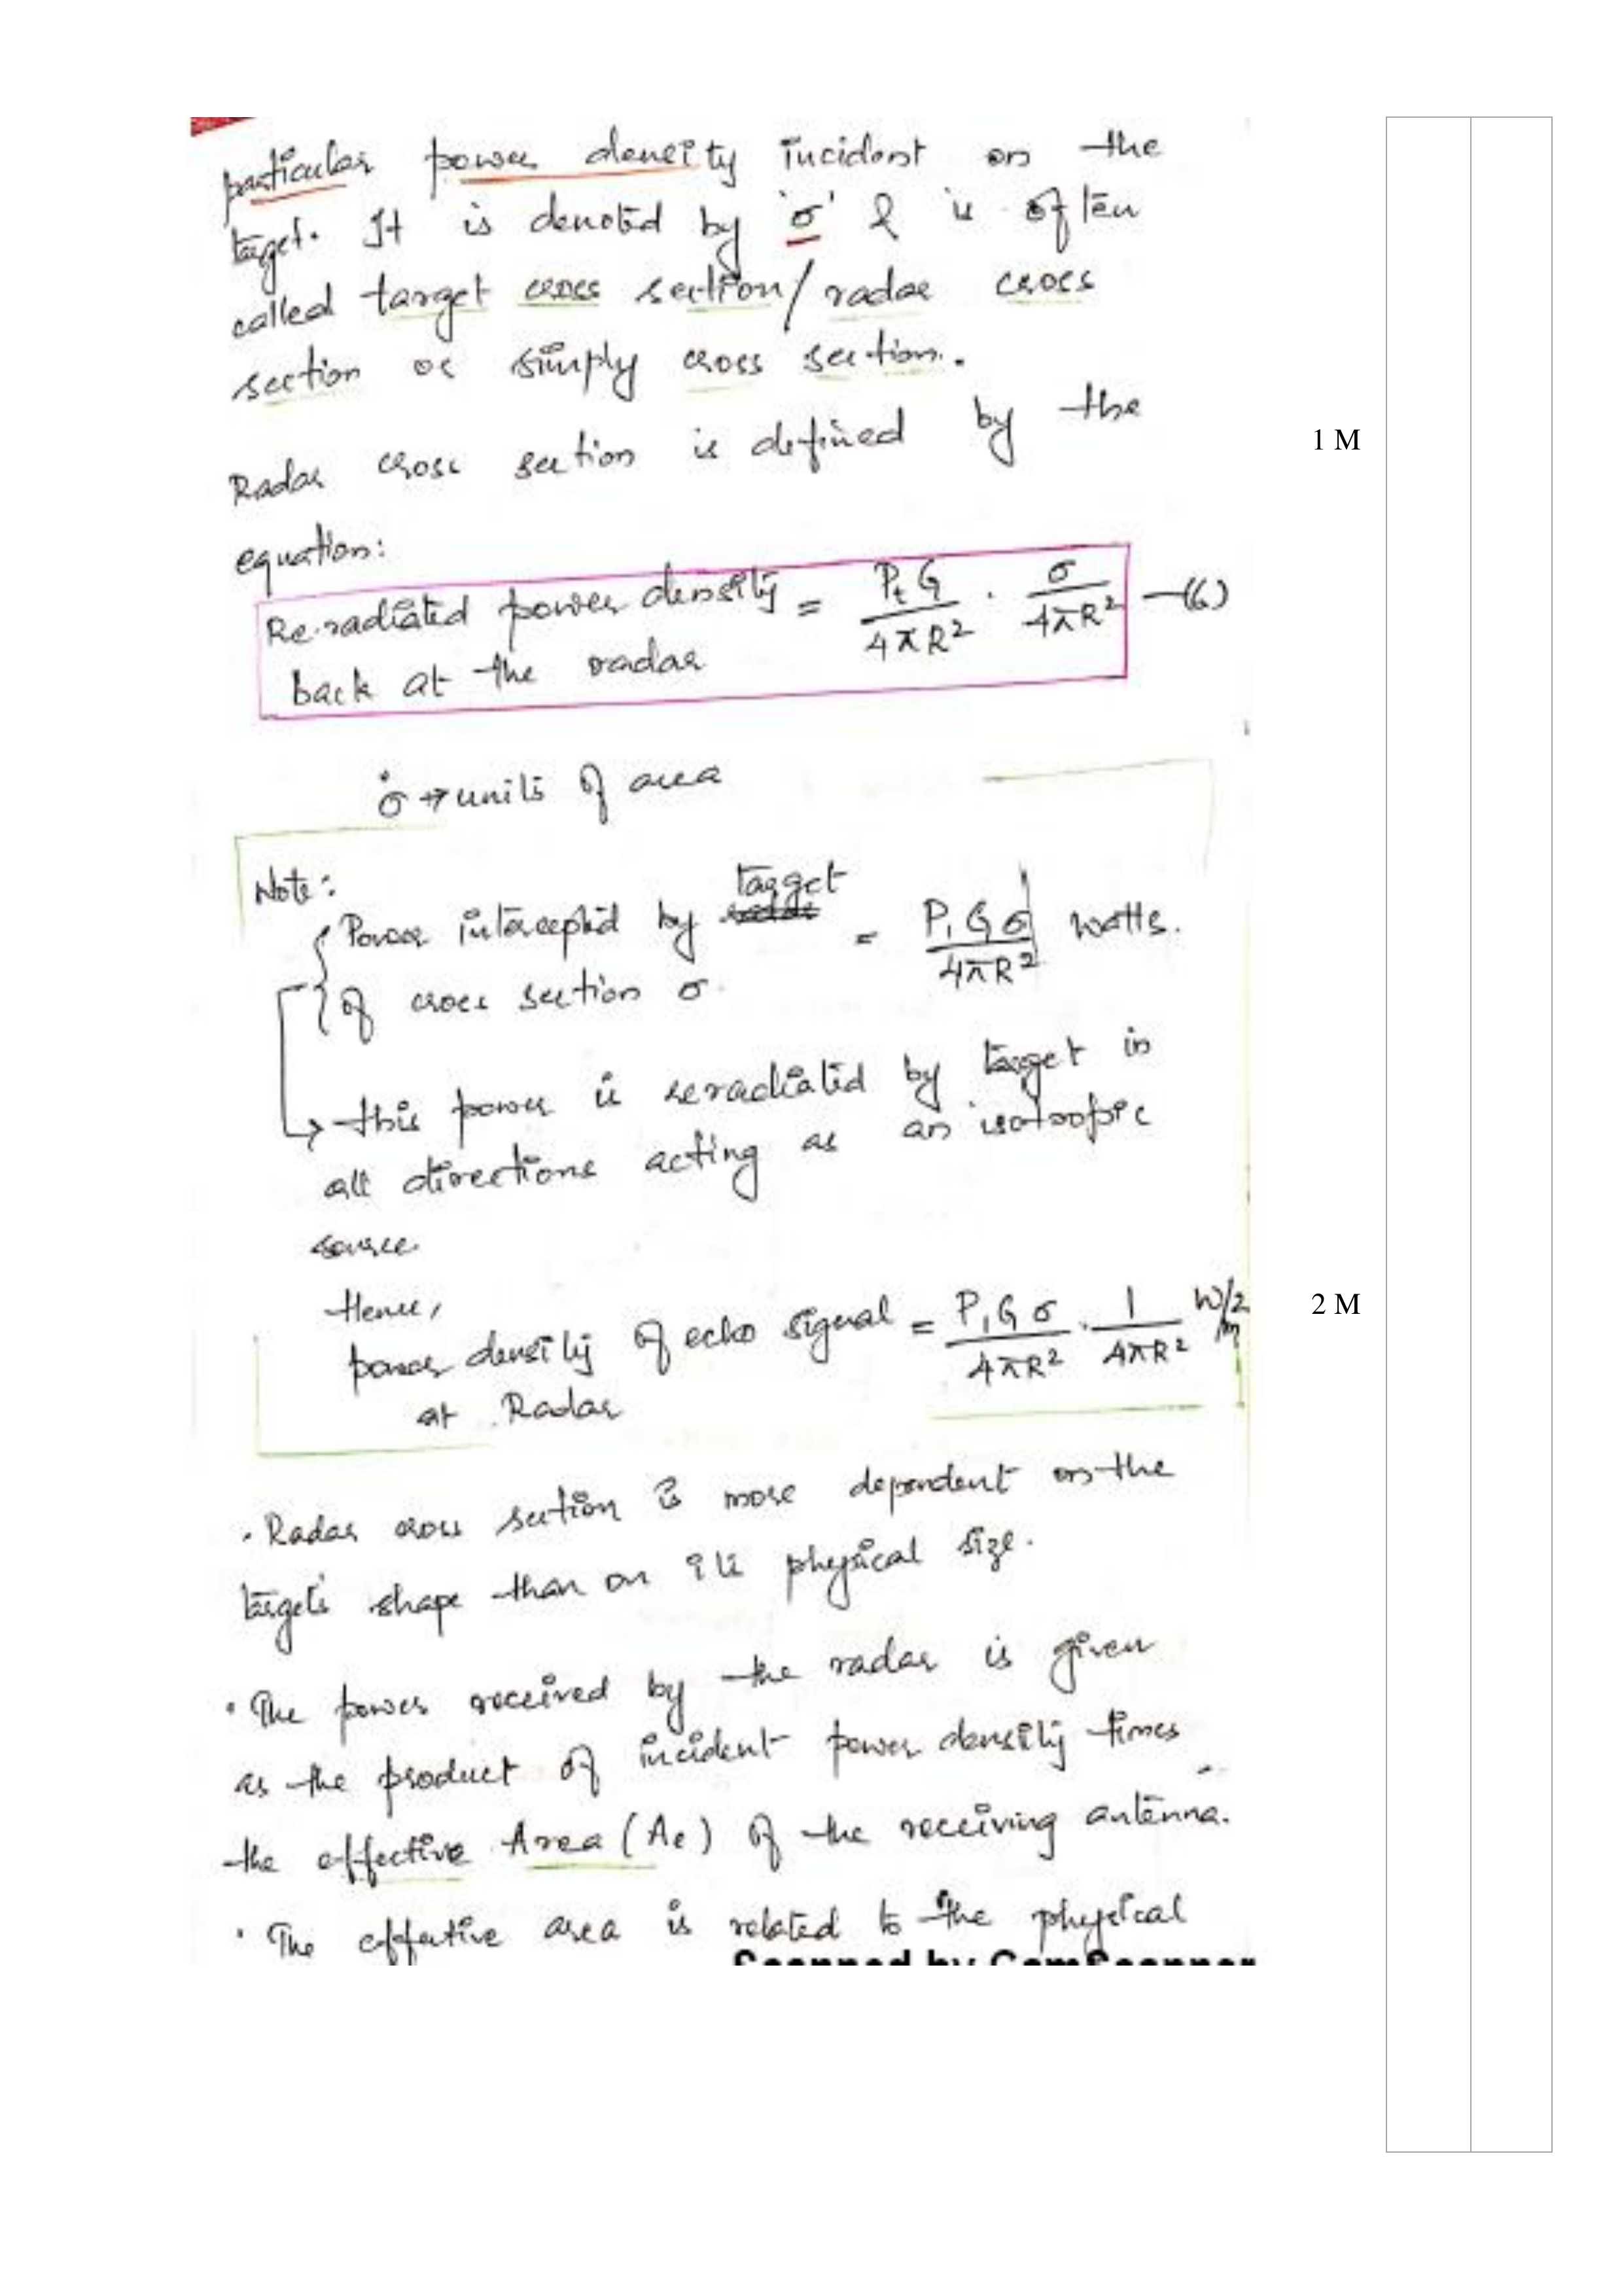 particular power density incident on the
target. It is denoted by 'σ' & is often
called target cross section/radar cross
section or simply cross section.
Radar cross section is defined by the
1 M
equation:
Re-radiated power density back at the radar = PtG/4πR² · σ/4πR² —(6)
σ → units of area
Note:
Power intercepted by target = P₁Gσ/4πR² watts.
of cross section σ.
→ this power is reradiated by target in
all directions acting as an isotropic
source.
Hence,
power density of echo signal = P₁Gσ/4πR² · 1/4πR² W/m²
2 M
at Radar
. Radar cross section is more dependent on the
targets shape than on its physical size.
. The power received by the radar is given
as the product of incident power density times
the effective Area (Ae) of the receiving antenna.
. The effective area is related to the physical
Scanned by CamScanner